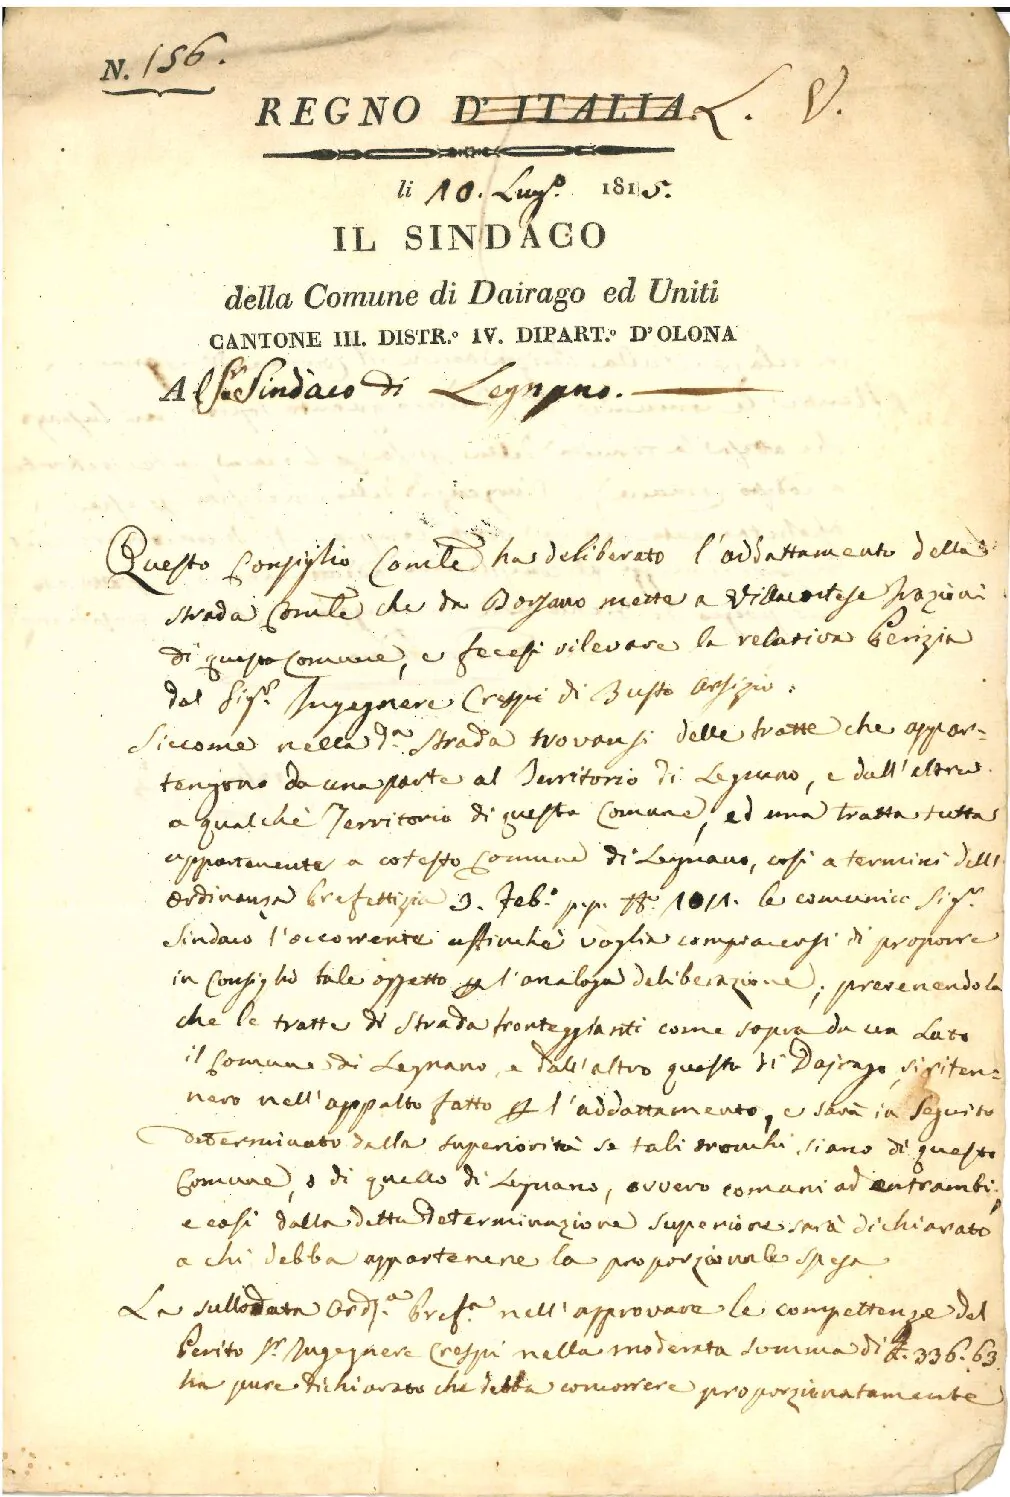 N. 156.
REGNO D'ITALIA. L. V.
li 10. Lug.o 1815.
IL SINDACO
della Comune di Dairago ed Uniti
CANTONE III. DISTR.o IV. DIPART.o D'OLONA
Al Sr. Sindaco di Legnano.
Questo Consiglio Comle ha deliberato l'addattamento della
strada Comle che da Borsano mette a Villacortese frazioni
di questa Comune, e fecesi rilevare la relativa Perizia
dal Sigr. Ingegnere Crespi di Busto Arsizio.
Siccome nella da. strada trovansi delle tratte che appar=
tengono da una parte al Territorio di Legnano, e dall'altra
a qualche Territorio di questa Comune, ed una tratta tutta
appartenente a cotesto Comune di Legnano, così a termini dell'
Ordinanza Prefettizia 3. Feb.o p.p. 1811. le comunico Sigr.
Sindaco l'occorrente affinchè voglia compiacersi di proporre
in Consiglio tale oggetto per l'analoga deliberazione, prevenendola
che le tratte di strada fronteggianti come sopra da un Lato
il Comune di Legnano, e dall'altro questo di Dajrago, si riten=
nero nell'appalto fatto per l'addattamento, e sarà in seguito
determinato dalla superiorità se tali tronchi siano di questo
Comune, o di quello di Legnano, ovvero comuni ad entrambi,
e così dalla detta determinazione superiore sarà dichiarato
a chi debba appartenere la proporzionale spesa
La sullodata Ord.a Pref.a nell'approvare le compettenze del
Perito Sr. Ingegnere Crespi nella moderata summa di £. 336.63.
ha pure dichiarato che debba concorrere proporzionatamente